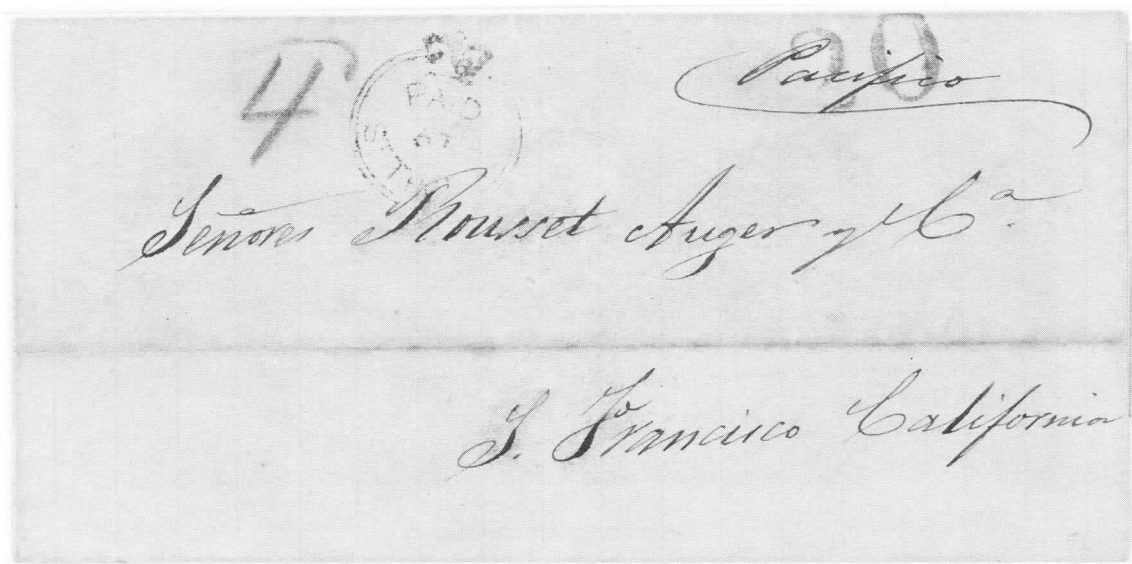 4
PAID
ST THO
20
Pacifico
Señores Rousset Auger y Cª.
S. Francisco California